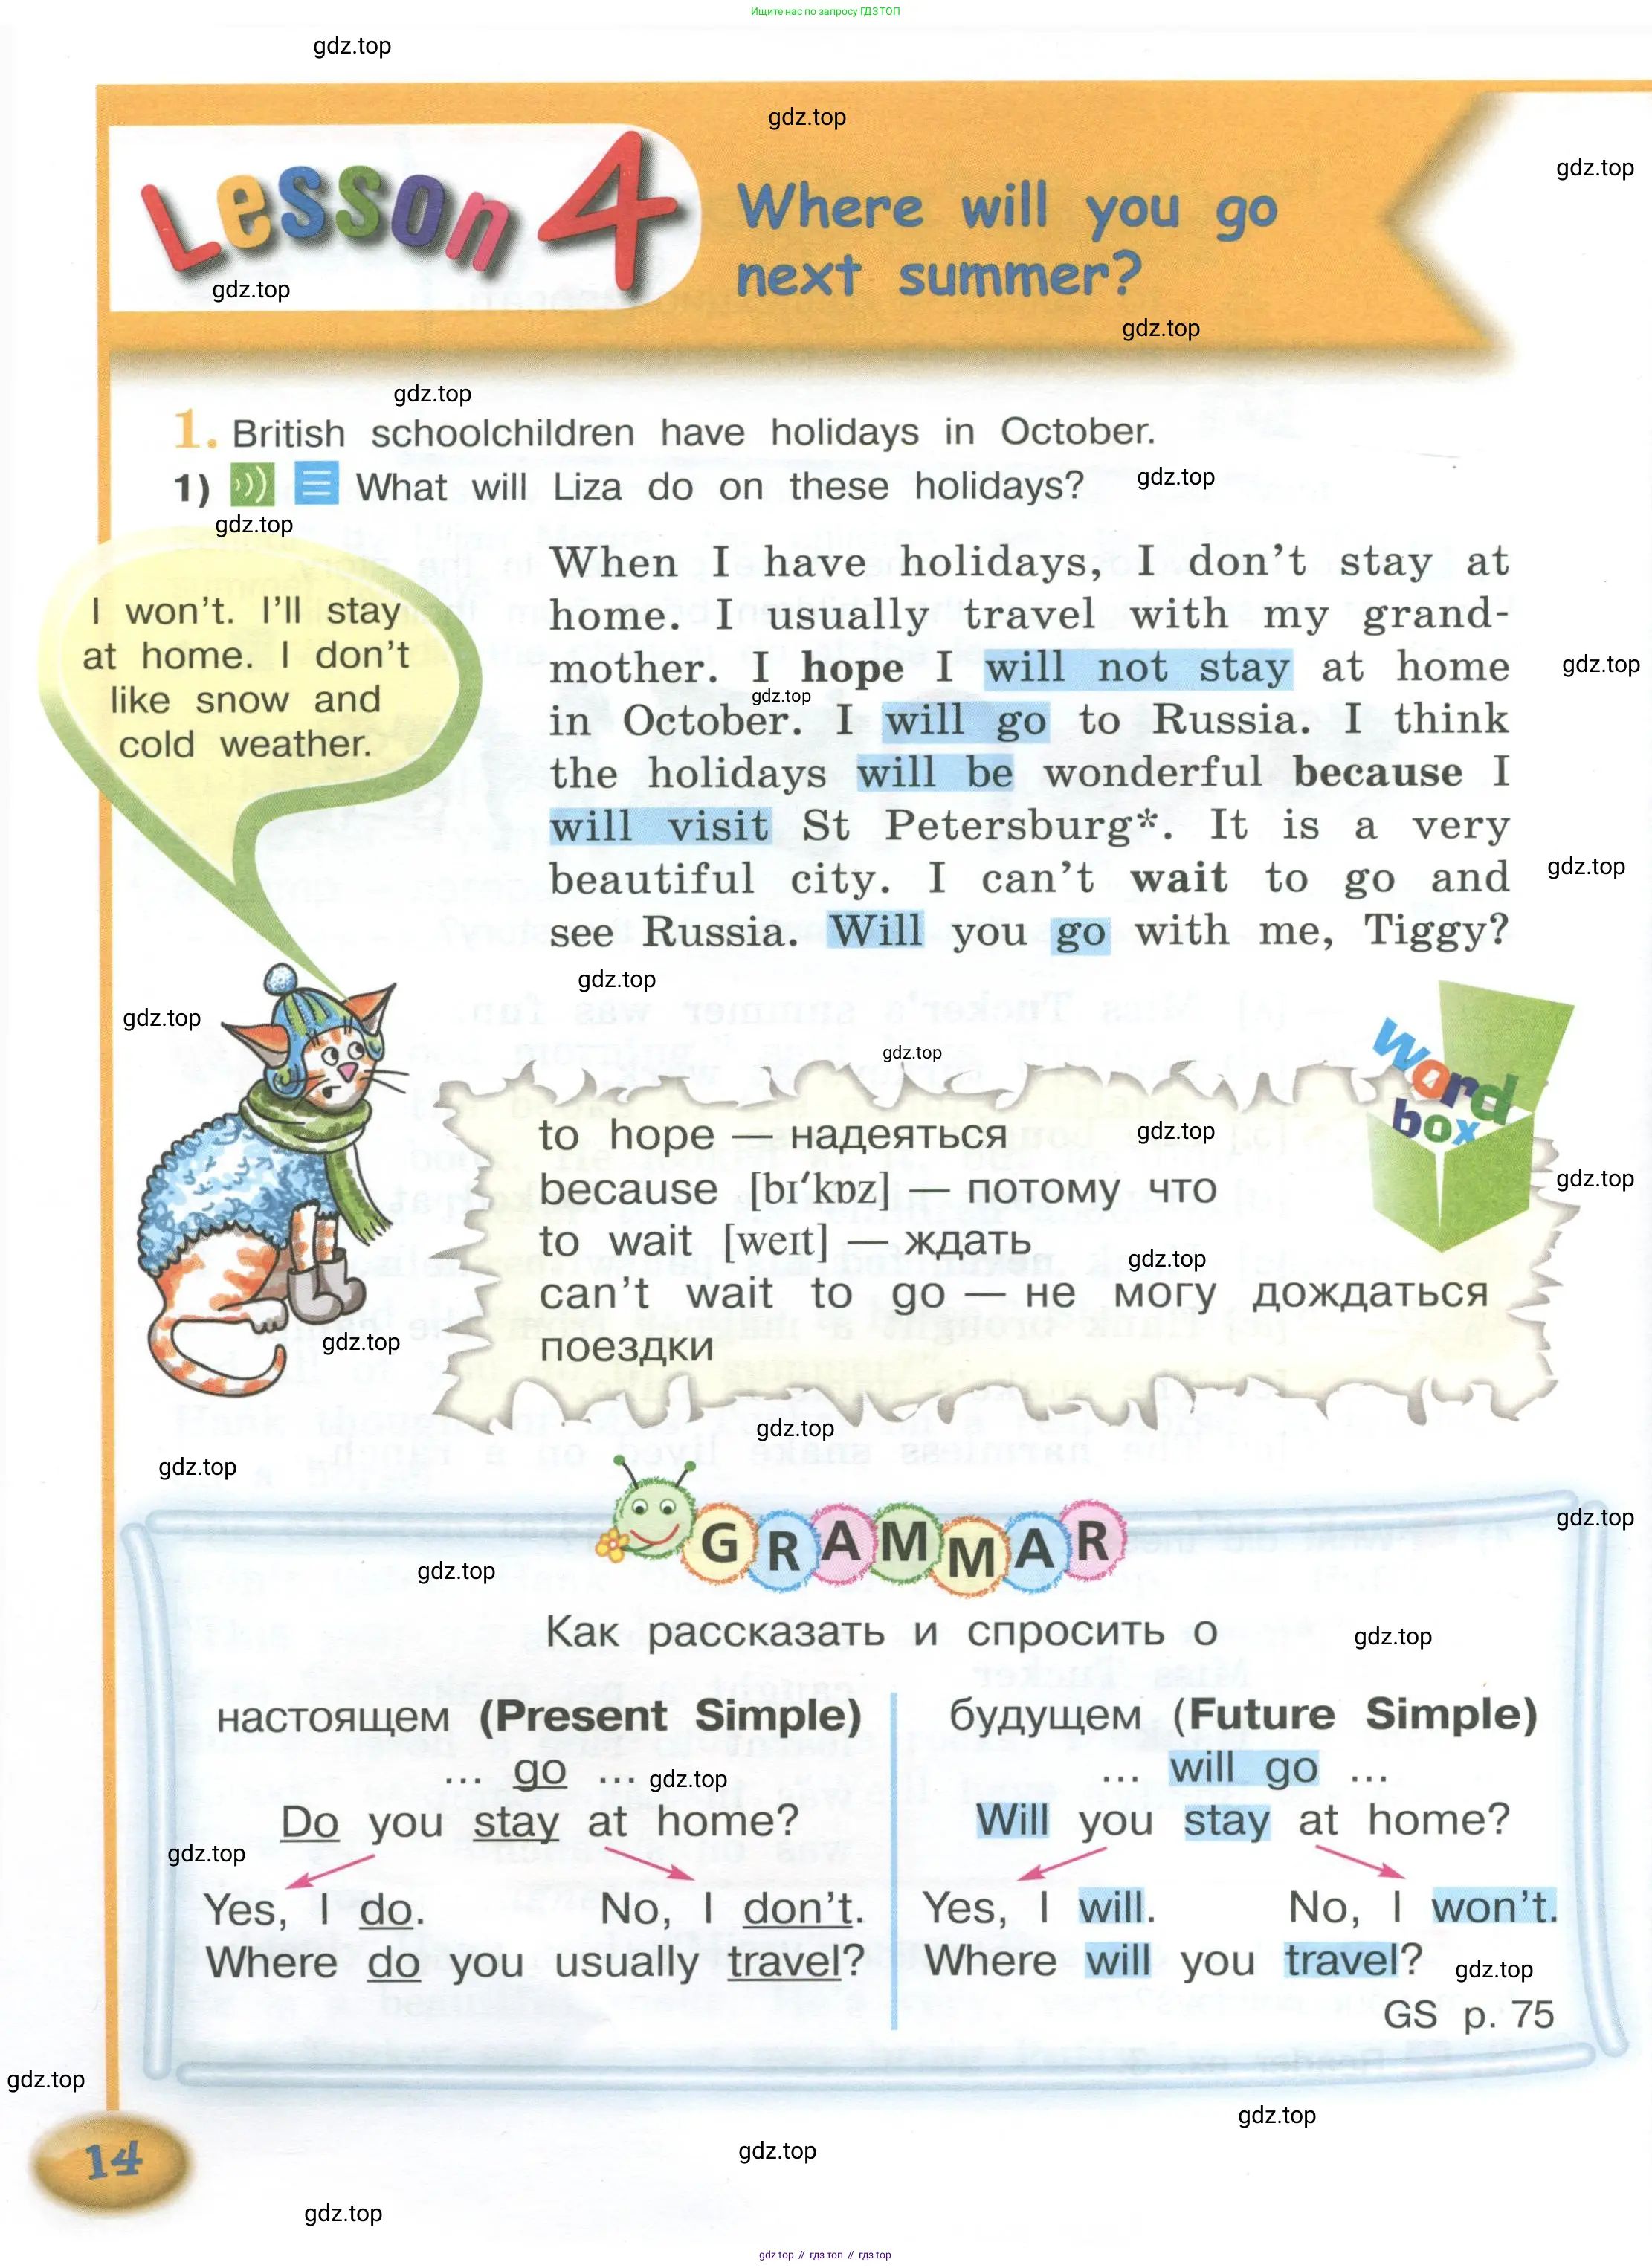 Ищите нас по запросу ГДЗ ТОП
gdz.top
gdz.top
gdz.top
Lesson 4
Where will you go
next summer?
gdz.top
gdz.top
gdz.top
1. British schoolchildren have holidays in October.
1) What will Liza do on these holidays?
gdz.top
gdz.top
I won't. I'll stay
at home. I don't
like snow and
cold weather.
When I have holidays, I don't stay at
home. I usually travel with my grand-
mother. I hope I will not stay at home
gdz.top
gdz.top
in October. I will go to Russia. I think
the holidays will be wonderful because I
will visit St Petersburg*. It is a very
beautiful city. I can't wait to go and
gdz.top
see Russia. Will you go with me, Tiggy?
gdz.top
gdz.top
gdz.top
word
box
to hope — надеяться
gdz.top
because [bɪ′kɒz] — потому что
gdz.top
to wait [weɪt] — ждать
gdz.top
can't wait to go — не могу дождаться
поездки
gdz.top
gdz.top
gdz.top
gdz.top
GRAMMAR
gdz.top
Как рассказать и спросить о
gdz.top
настоящем (Present Simple)
... go ...
gdz.top
Do you stay at home?
gdz.top
Yes, I do. No, I don't.
Where do you usually travel?
будущем (Future Simple)
... will go ...
Will you stay at home?
Yes, I will. No, I won't.
Where will you travel?
gdz.top
GS p. 75
gdz.top
gdz.top
14
gdz.top
gdz.top
gdz.top // гдз топ // гдз top